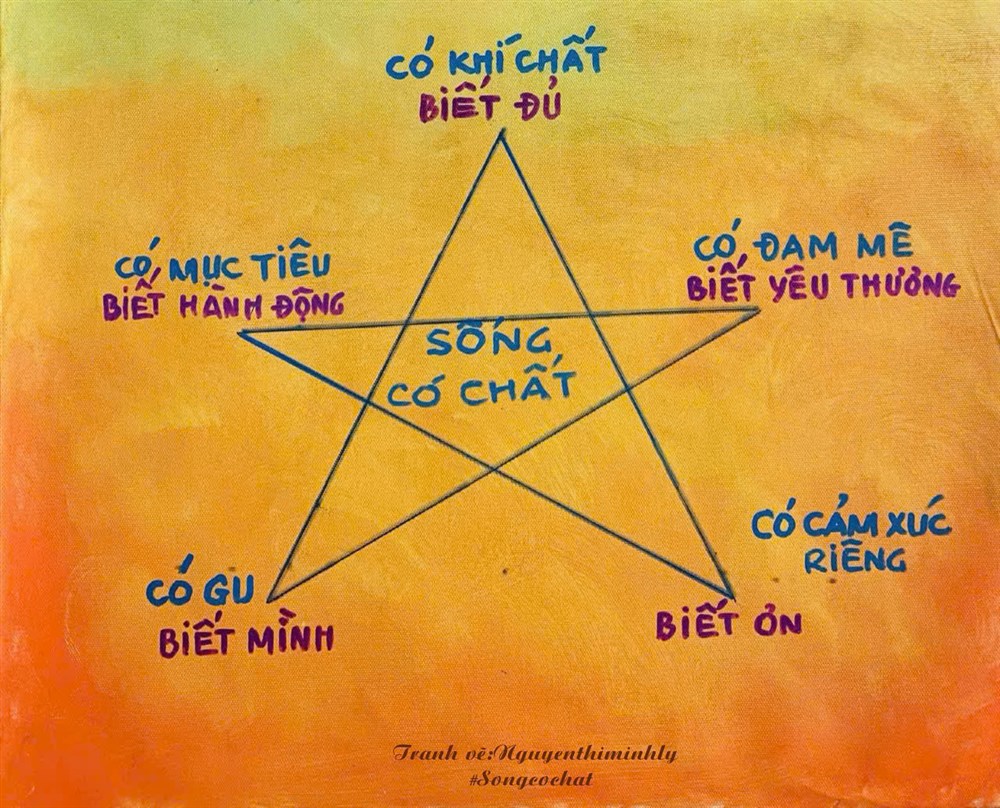 CÓ KHÍ CHẤT
BIẾT ĐỦ
CÓ MỤC TIÊU
BIẾT HÀNH ĐỘNG
CÓ ĐAM MÊ
BIẾT YÊU THƯƠNG
SỐNG
CÓ CHẤT
CÓ CẢM XÚC
RIÊNG
CÓ GU
BIẾT MÌNH
BIẾT ƠN
Tranh vẽ:Nguyenthiminhly
#Songcochat